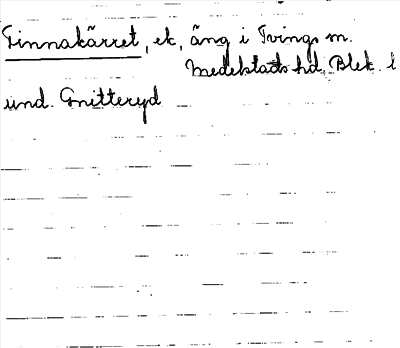 Finnakärret, ek, äng i Tvings sn.
Medelstads hd, Blek. l
und. Gnitteryd